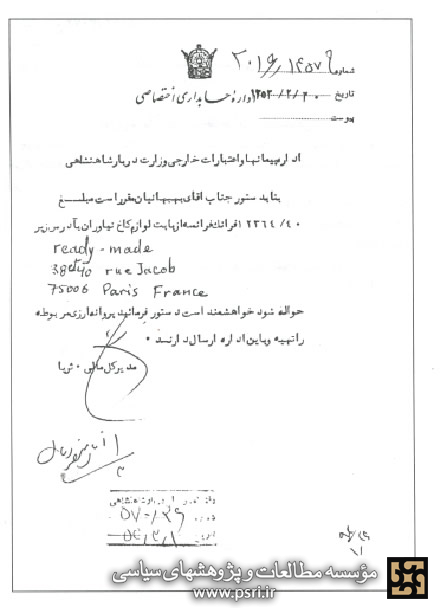 شماره ۲۰۱۶/۱۴۵۷۹
تاریخ ۱۳۵۲/۲/۲۰ اداره حسابداری اختصاصی
پیوست
اداره پیمانها و اعتبارات خارجی وزارت دربار شاهنشاهی
بنا بدستور جناب آقای بهبهانیان مقرر است مبلغ
۱۲۳۶۴/۴۰ فرانک فرانسه از بابت لوازم کاخ نیاوران بآدرس زیر
ready-made
38et40 rue Jacob
75006 Paris France
حواله شود خواهشمند است دستور فرمائید پروانه ارزی مربوطه
را تهیه و باین اداره ارسال دارند .
مدیرکل مالی . ثریا
مؤسسه مطالعات و پژوهشهای سیاسی
www.psri.ir